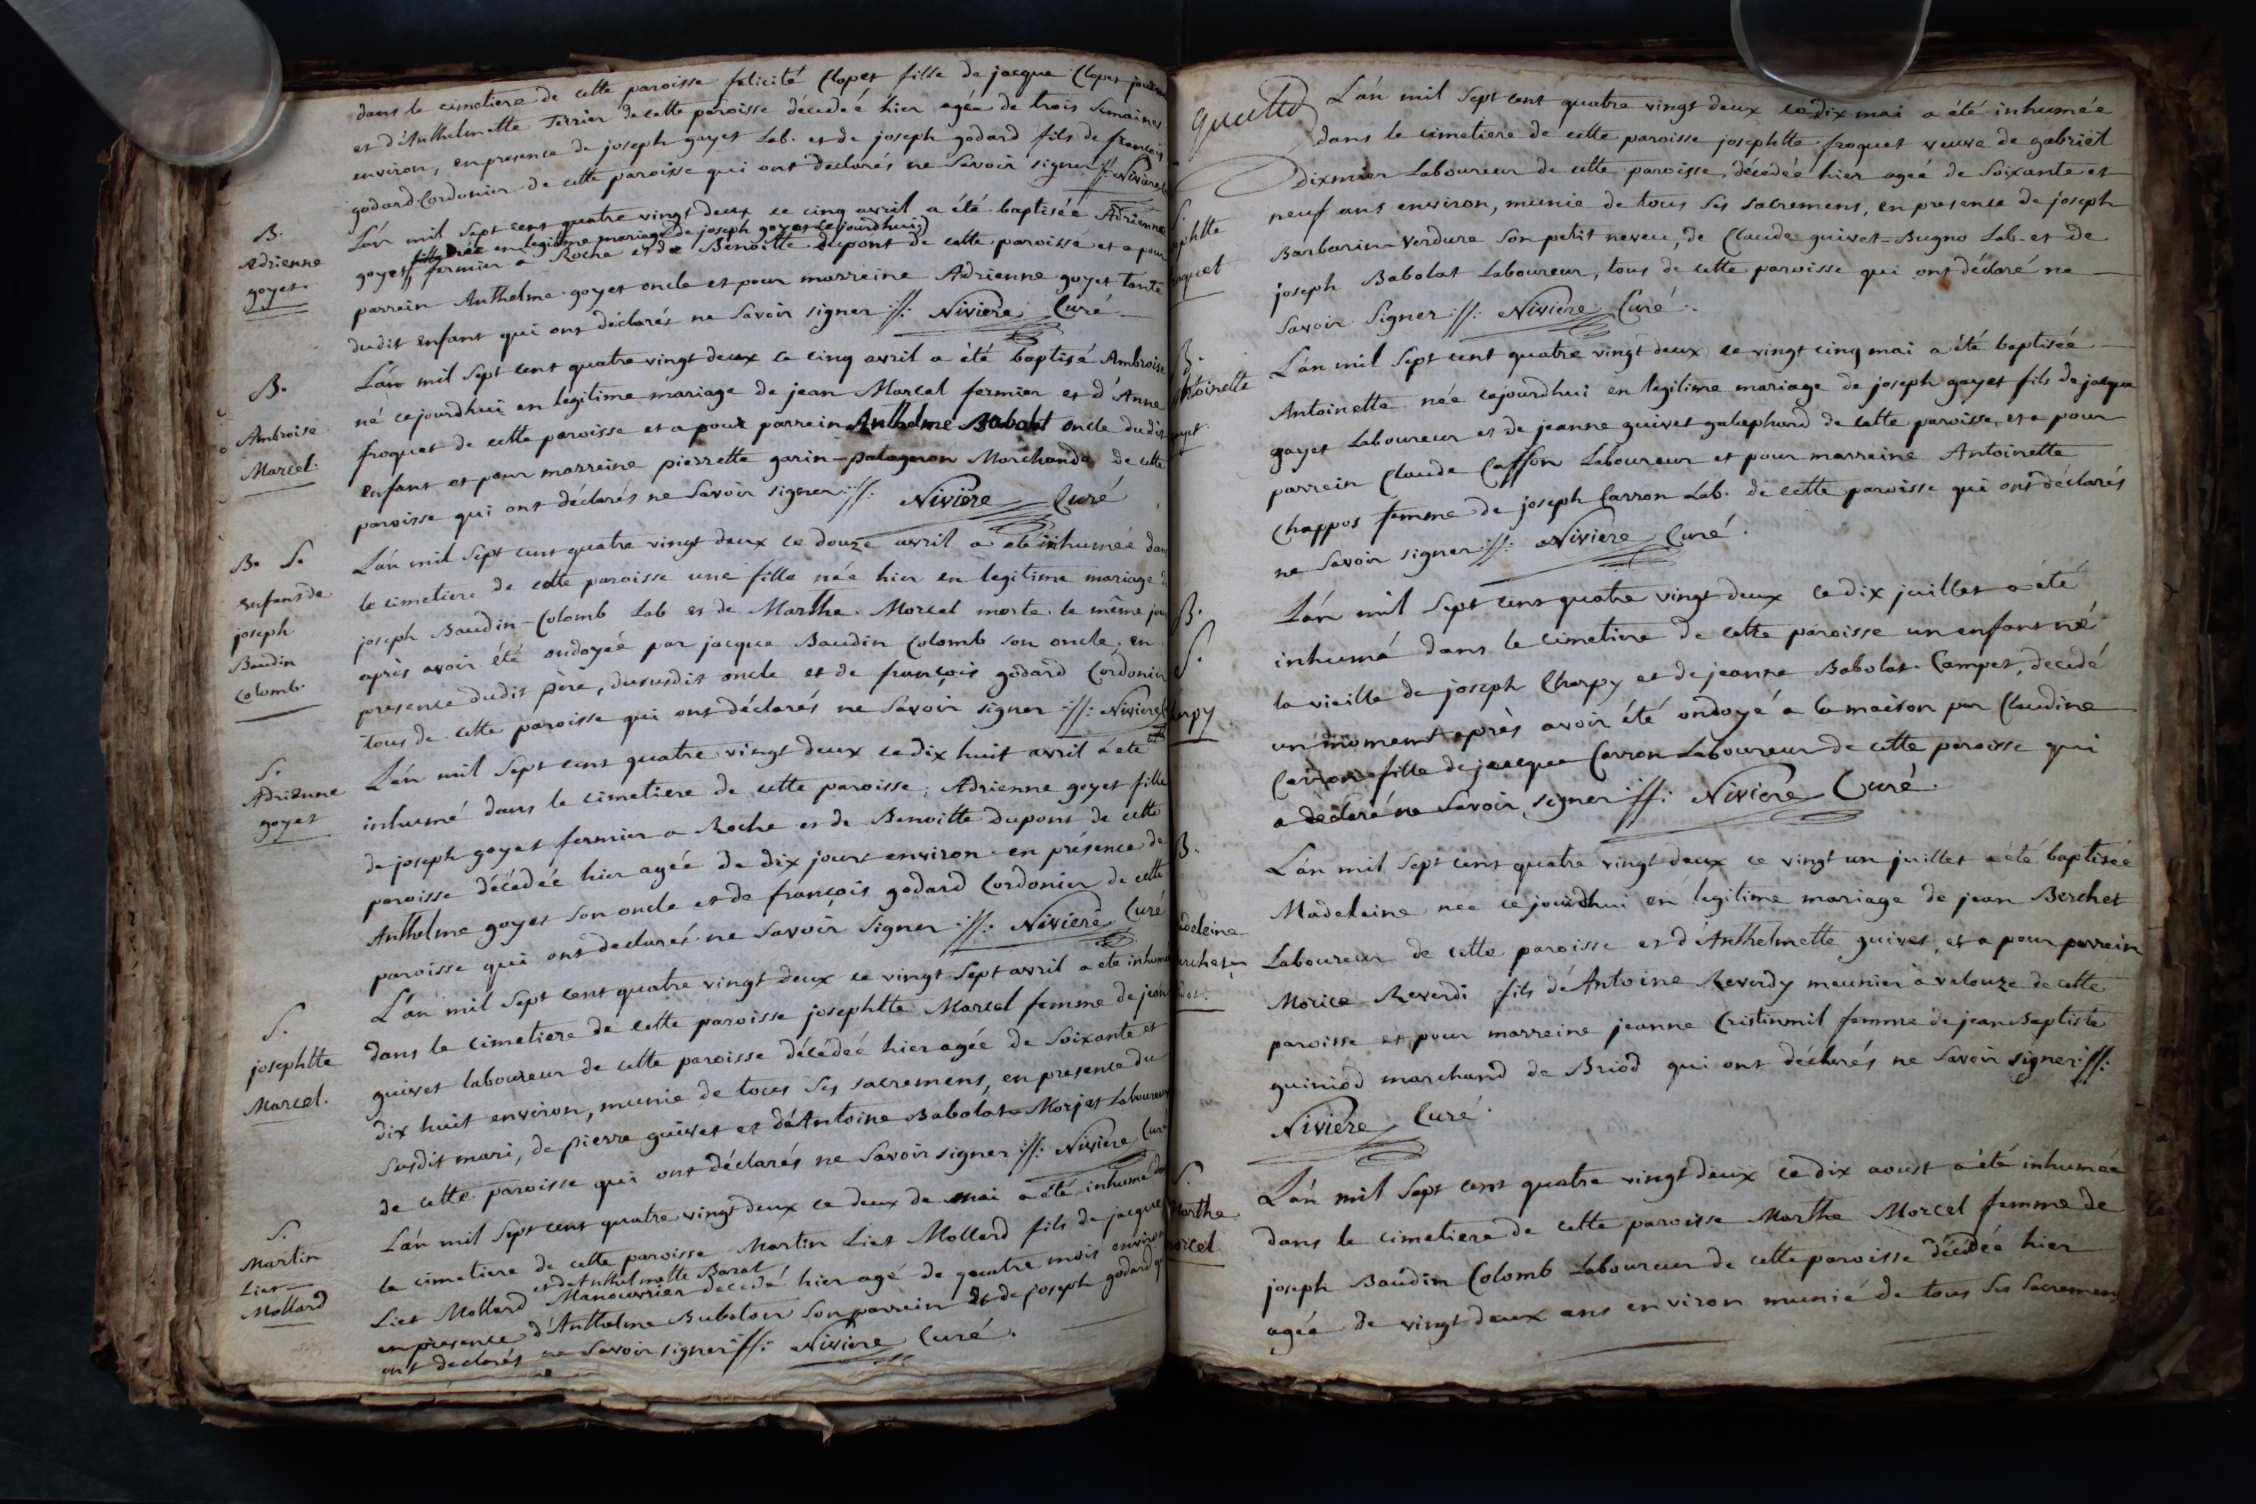 dans le cimetiere de cette paroisse felicité Clopet fille de jacque Clopet
et d'Anthelmette Terrier de cette paroisse décedeé hier agée de trois Semaines
environ, en presence de joseph goyet Lab. et de joseph godard fils de françois
godard Cordonier de cette paroisse qui ont declarés ne Savoir signer :/: Niviere
B.
Adrienne
goyet
L'an mil Sept cent quatre vingt deux ce cinq avril a été baptisée Adrienne
née en legitime mariage de joseph goyet (cejourdhui)
goyet fermier a Roche et de Benoitte dupont de cette paroisse et a pour
parrein Anthelme goyet oncle et pour marreine Adrienne goyet tante
dudit enfant qui ont déclarés ne Savoir signer :/: Niviere Curé
B.
Ambroise
Marcel.
L'an mil Sept cent quatre vingt deux ce cinq avril a été baptisé Ambroise
né cejourdhui en legitime mariage de jean Marcel fermier et d'Anne
froquet de cette paroisse et a pour parrein Anthelme Babolat oncle dudit
enfant et pour marreine pierrette garin-patagnon Marchande de cette
paroisse qui ont déclarés ne Savoir signer :/: Niviere Curé
B. S.
Enfant de
joseph
Baudin
Colomb.
L'an mil Sept cent quatre vingt deux ce douze avril a été inhumée dans
le cimetiere de cette paroisse une fille née hier en legitime mariage de
joseph Baudin-Colomb Lab et de Marthe Morcel morte le même jour
après avoir été ondoyée par jacque Baudin Colomb son oncle, en
presence dudit père, dususdit oncle et de françois godard Cordonier
tous de cette paroisse qui ont déclarés ne Savoir signer :/: Niviere
S.
Adrienne
goyet
L'an mil Sept cent quatre vingt deux ce dix huit avril a eté
inhumé dans le cimetiere de cette paroisse, Adrienne goyet fille
de joseph goyet fermier a Roche et de Benoitte Dupont de cette
paroisse décédée hier agée de dix jours environ en présence de
Anthelme goyet Son oncle et de françois godard Cordonier de cette
paroisse qui ont declarés ne Savoir Signer :/: Niviere Curé
S.
josephtte
Marcel.
L'an mil Sept cent quatre vingt deux ce vingt Sept avril a eté inhumé
dans le cimetiere de cette paroisse josephtte Marcel femme de jean
guivet laboureur de cette paroisse décédeé hier agée de Soixante et
dix huit environ, munie de tous Ses sacremens, en presence du
Susdit mari, de pierre guivet et d'Antoine Babolat-Morjet Laboureur
de cette paroisse qui ont déclarés ne Savoir signer :/: Niviere Curé
S.
Martin
Liet
Mollard
L'an mil Sept cent quatre vingt deux ce deux de mai a été inhumé dans
le cimetiere de cette paroisse Martin Liet Mollard fils de jacque
et d'Anthelmette Barat
Liet Mollard Manouvrier decedé hier agé de quatre mois environ
en presence d'Anthelme Babolat Son parrein et de joseph godard qui
ont declarés ne Savoir signer :/: Niviere Curé.
L'an mil Sept cent quatre vingt deux ce dix mai a été inhumée
dans le cimetiere de cette paroisse josephtte froquet veuve de gabriël
dixmier Laboureur de cette paroisse, décedée hier ageé de Soixante et
neuf ans environ, munie de tous Ses sacremens, en presence de joseph
Barbarin-Verdure Son petit neveu, de Claude guivet-Bugno Lab. et de
joseph Babolat Laboureur, tous de cette paroisse qui ont déclaré ne
Savoir Signer :/: Niviere Curé.
B.
L'an mil Sept cent quatre vingt deux ce vingt cinq mai a été baptisée
Antoinette née cejourdhui en legitime mariage de joseph goyet fils de jacque
goyet Laboureur et de jeanne guivet galephard de cette paroisse, et a pour
parrein Claude Casson Laboureur et pour marreine Antoinette
Chappos femme de joseph Carron Lab. de cette paroisse qui ont déclarés
ne Savoir signer :/: Niviere Curé.
B.
S.
L'an mil Sept cent quatre vingt deux ce dix juillet a été
inhumé dans le cimetiere de cette paroisse un enfant né
la vieille de joseph Charpy et de jeanne Babolat-Campet, decedé
un moment après avoir été ondoyé a la maison par Claudine
Carron fille de jacque Carron Laboureur de cette paroisse qui
a declaré ne Savoir signer :/: Niviere Curé.
B.
L'an mil Sept cent quatre vingt deux ce vingt un juillet a été baptisée
Madeleine neé cejourdhui en legitime mariage de jean Berchet
Laboureur de cette paroisse et d'Anthelmette guivet, et a pour parrein
Morice Reverdi fils d'Antoine Reverdy meunier a valouze de cette
paroisse et pour marreine jeanne Cristinmil femme de jean Baptiste
guiniod marchand de Briod qui ont déclarés ne Savoir signer :/:
Niviere Curé.
S.
Marthe
Morcel
L'an mil Sept cent quatre vingt deux ce dix aoust a été inhumée
dans le cimetiere de cette paroisse Marthe Morcel femme de
joseph Baudin Colomb Laboureur de cette paroisse décédée hier
agée de vingt deux ans environ munie de tous Ses Sacremens